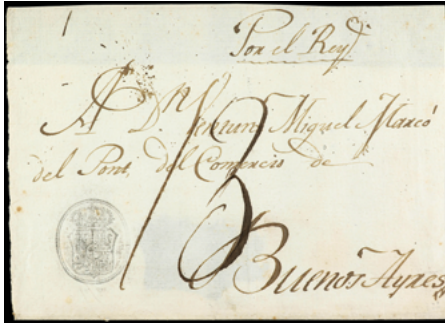 Por el Rey
A D.n Ventura Miguel Marcó
del Pont, del Comercio de
13
Buenos Ayres